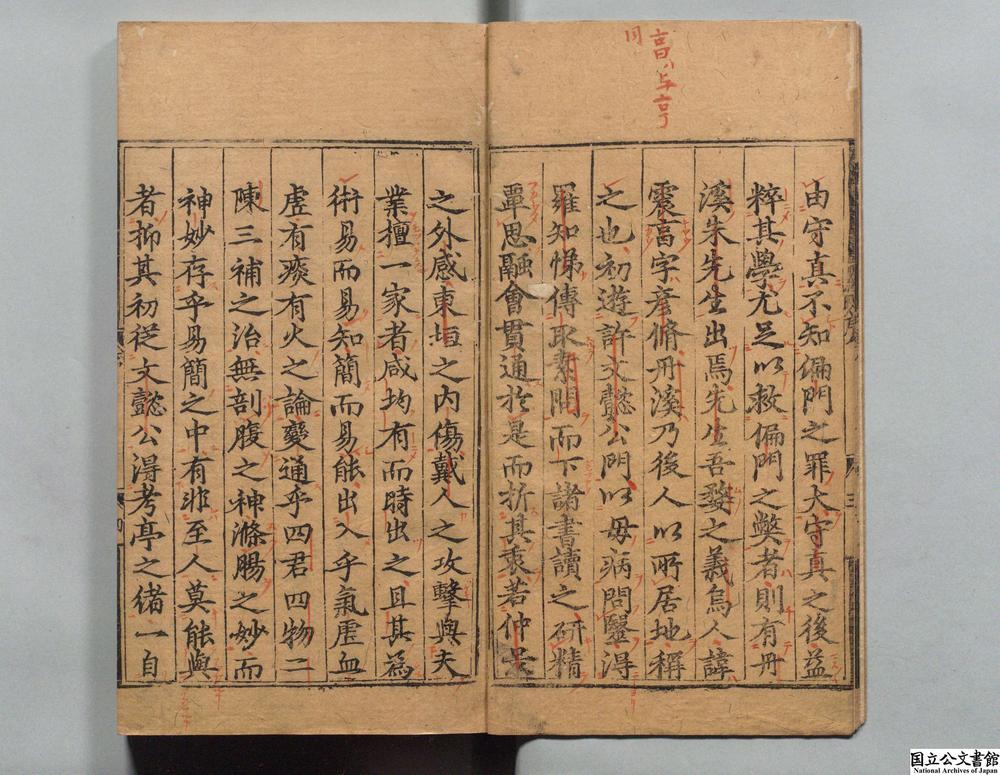 亯ハ与亨
同
由守真不知偏門之罪大守真之後益
粹其學尤足以救偏門之弊者則有丹
溪朱先生出焉先生吾婺之義烏人諱
震亯字彥脩丹溪乃後人以所居地稱
之也初遊許文懿公門以母病問醫淂
羅知悌傳取素問而下諸書讀之研精
覃思融會貫通於是而折其衷若仲景
之外感東垣之内傷戴人之攻擊與夫
業擅一家者咸均有而時出之且其為
術易而易知簡而易能出入乎氣虛血
虛有痰有火之論變通乎四君四物二
陳三補之治無剖腹之神滌腸之妙而
神妙存乎易簡之中有非至人莫能與
者抑其初從文懿公淂考亭之緒一自
国立公文書館
National Archives of Japan